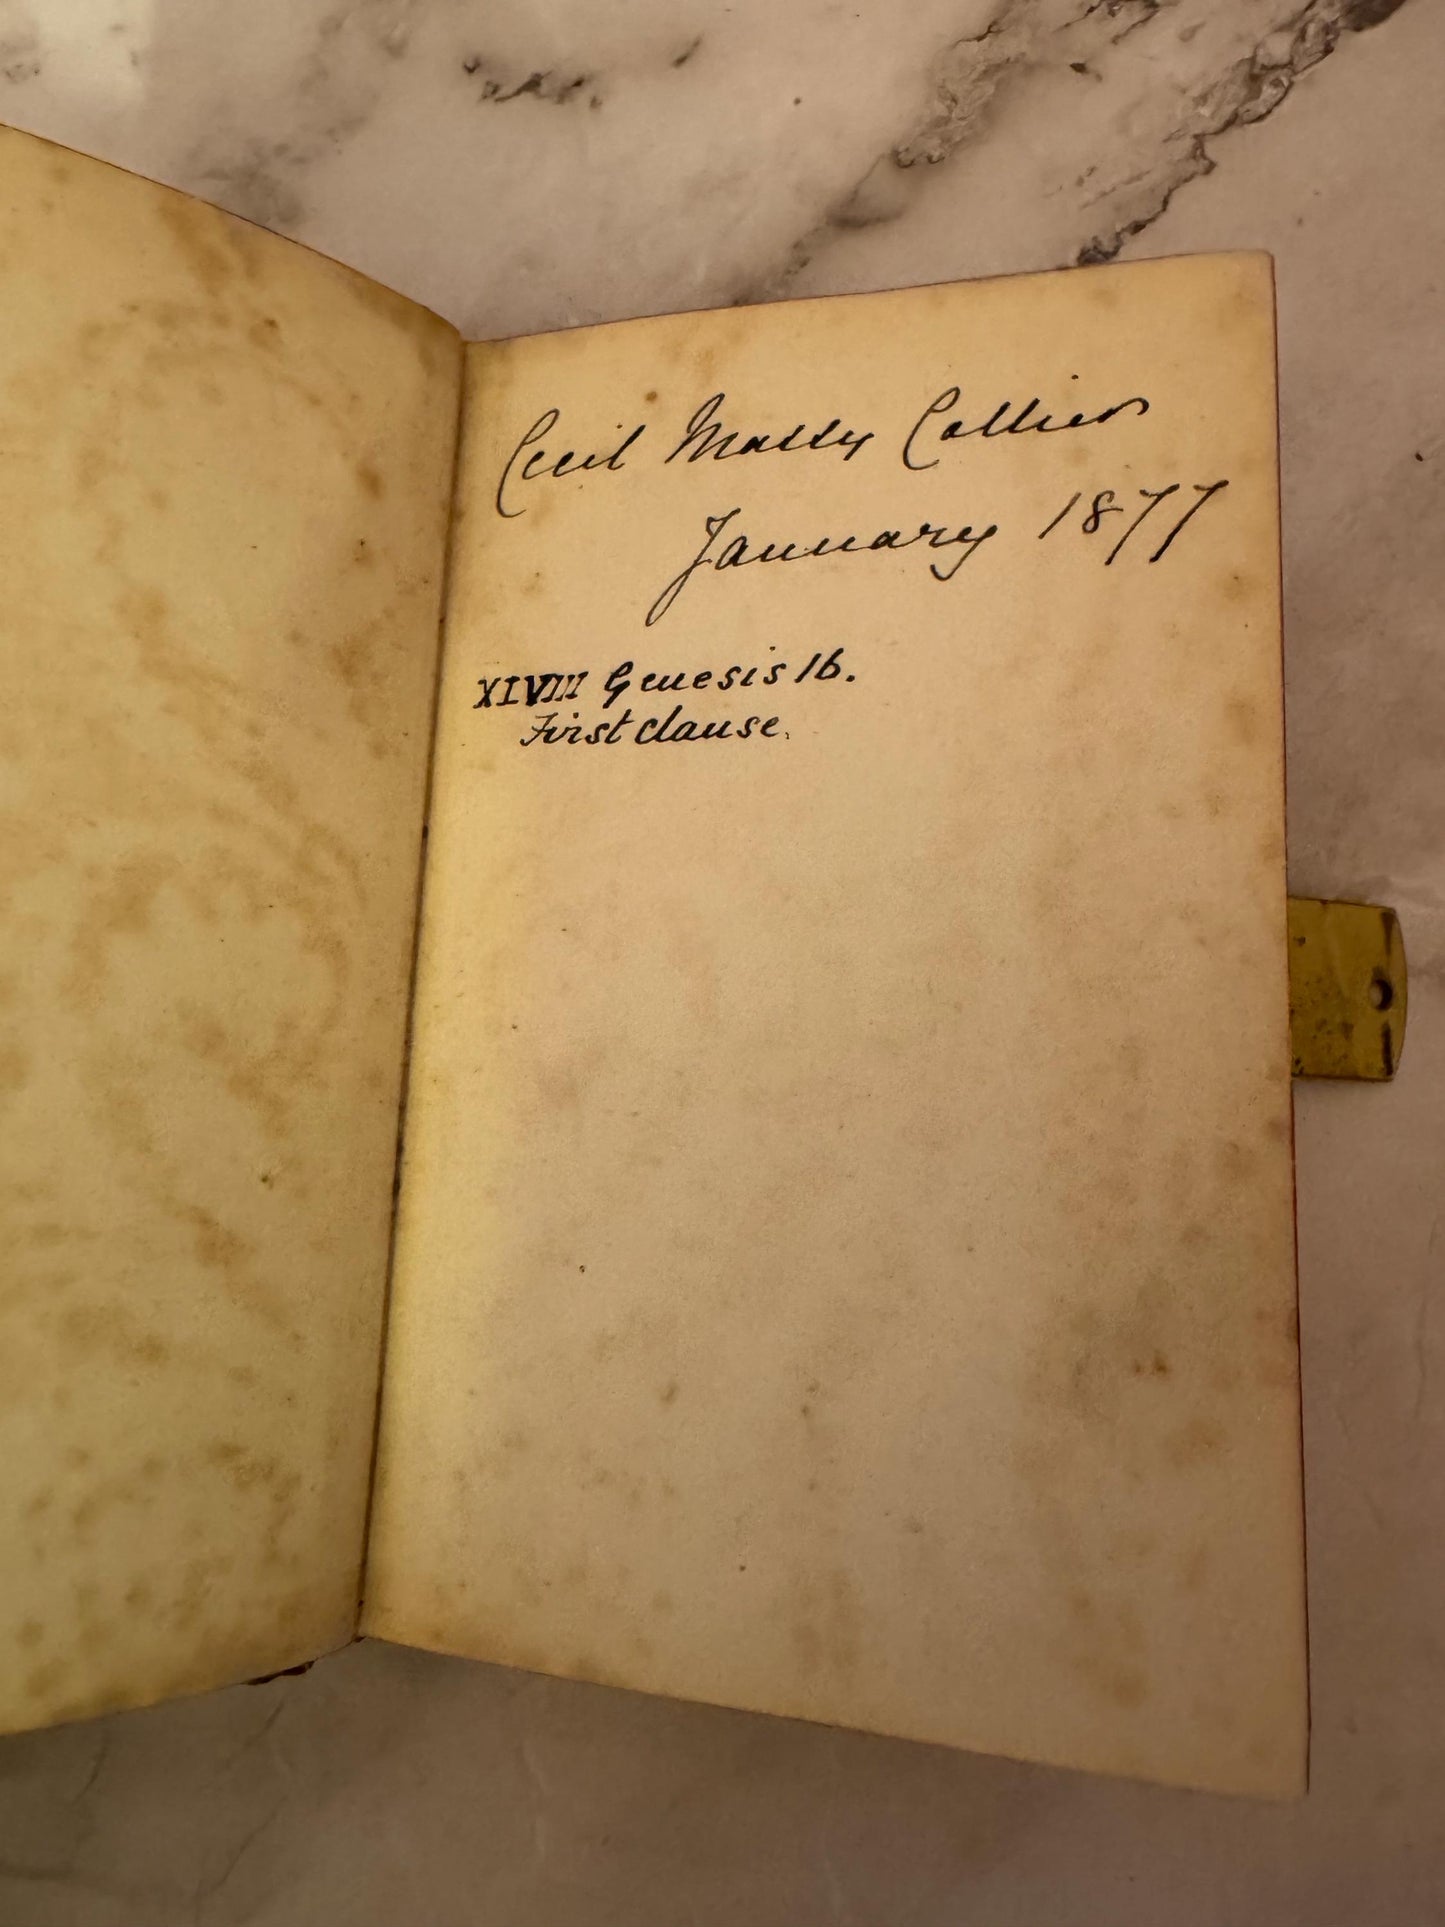 Cecil Matty Collier
January 1877
XIVIII Genesis 16.
First clause.